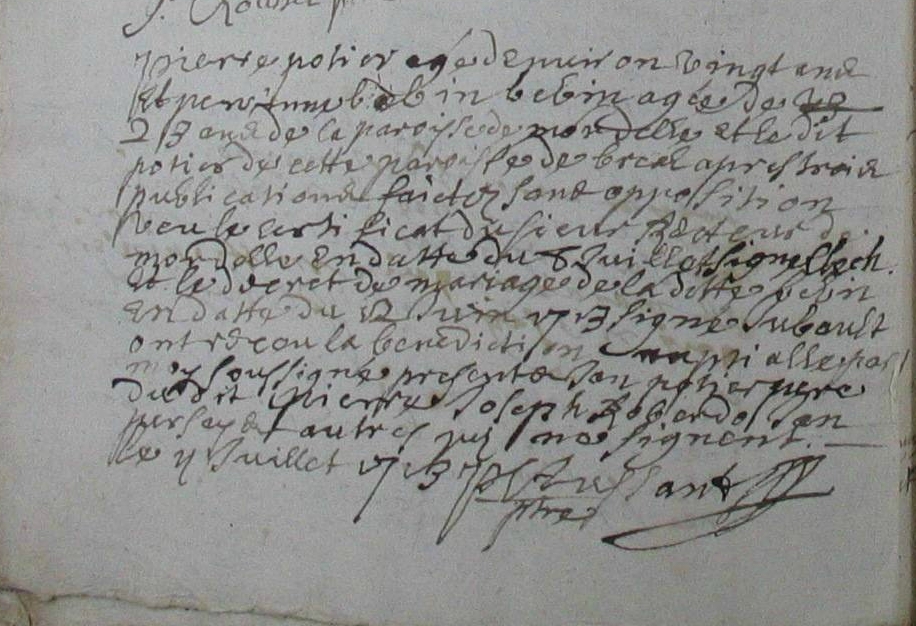 pierre potier age denviron vingt ans
Et perinne belin agée de
23 ans de la paroisse de mordelle et le dit
potier de cette paroisse de breal apres trois
publications faictes sans oppossition
veu le certificat du sieur Recteur de
mordelle En datte du 8 Juillet signe
Et le decret de mariage de la ditte belin
En datte du 12 Juin 1713 signe Jubault
ont reçou la benediction nuptialle par
moy soussigne presents Jan potier pere
du dit pierre Joseph Jan
et autres qui ne signent.
Le 11 Juillet 1713
ptre